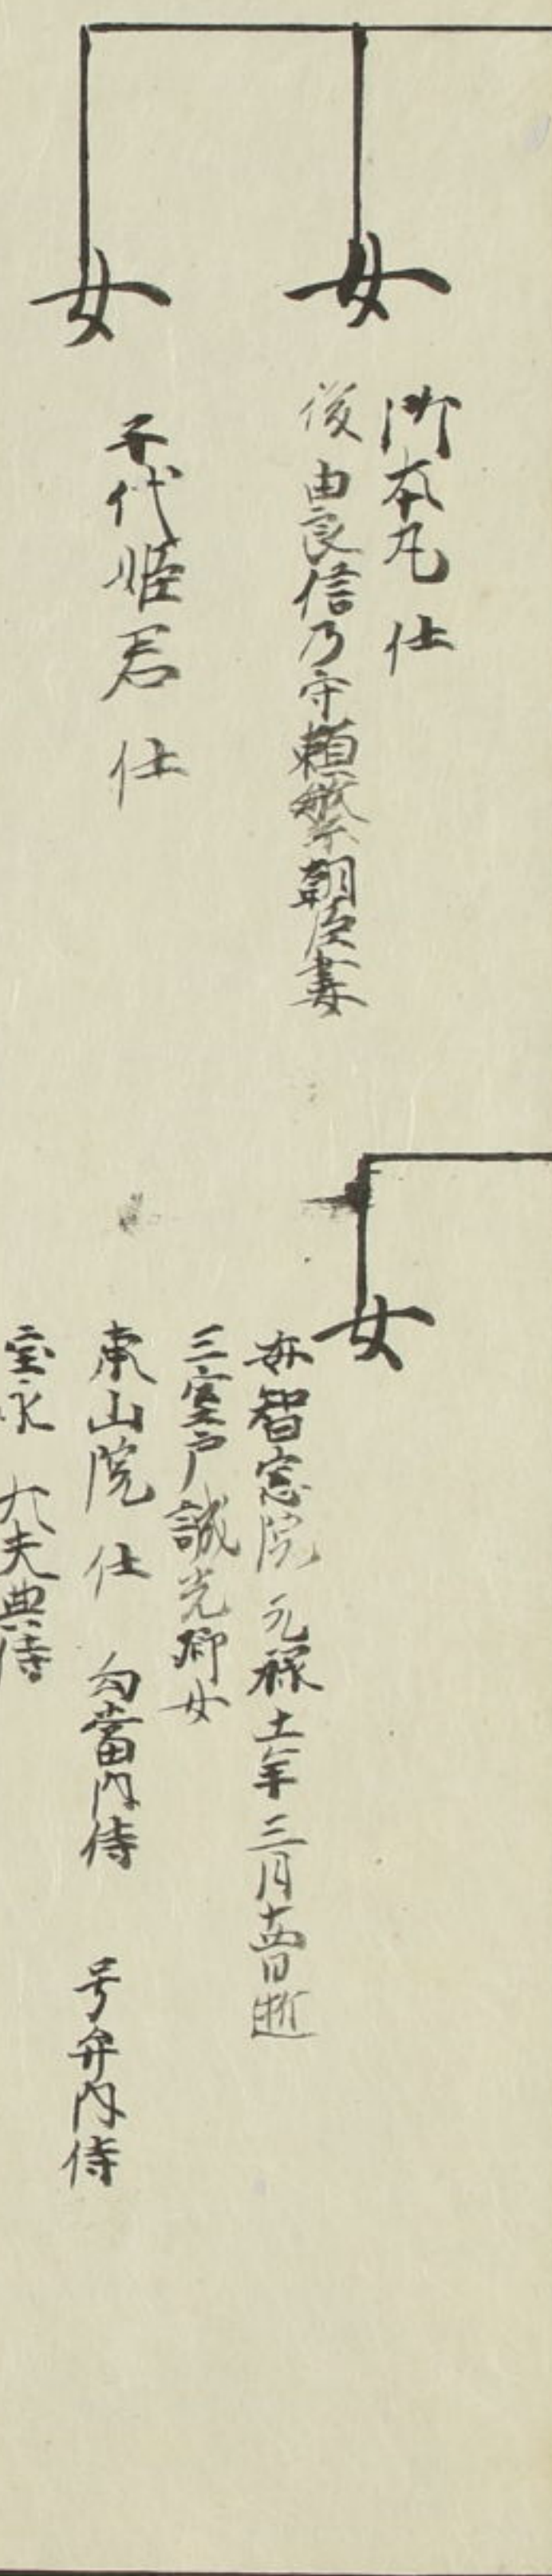 女
御本丸 仕
後 由良信乃守頼繁朝臣妻
女
千代姫君 仕
女
母智憲院 元禄十一年三月十四日逝
三室戸誠光卿女
東山院 仕 勾當内侍 号弁内侍
宝永 大夫典侍